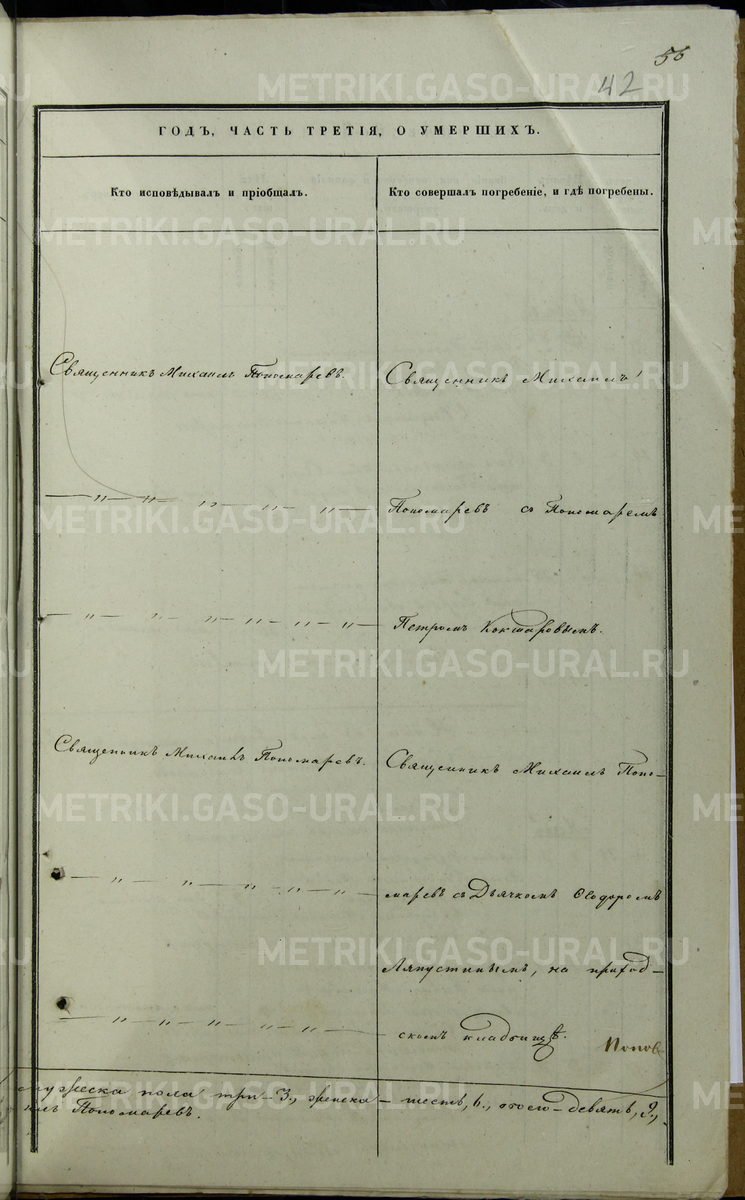 56
42
ГОДЪ, ЧАСТЬ ТРЕТІЯ, О УМЕРШИХЪ.
Кто исповѣдывалъ и пріобщалъ.
Кто совершалъ погребеніе, и гдѣ погребены.
Священникъ Михаилъ Пономаревъ.
Священникъ Михаилъ
— „ — „ — „ — „ — „ —
Пономаревъ съ Пономаремъ
— „ — „ — „ — „ — „ — „ —
Петромъ Кокшаровымъ.
Священникъ Михаилъ Пономаревъ.
Священникъ Михаилъ Поно-
— „ — „ — „ — „ — „ —
маревъ съ Дьячкомъ Ѳеодоромъ
Ляпустинымъ, на приход-
— „ — „ — „ — „ — „ —
скомъ кладбищѣ.
Попов
мужеска пола три – 3, женска – шесть, 6, всего – девять, 9,
Пономаревъ.
METRIKI.GASO-URAL.RU